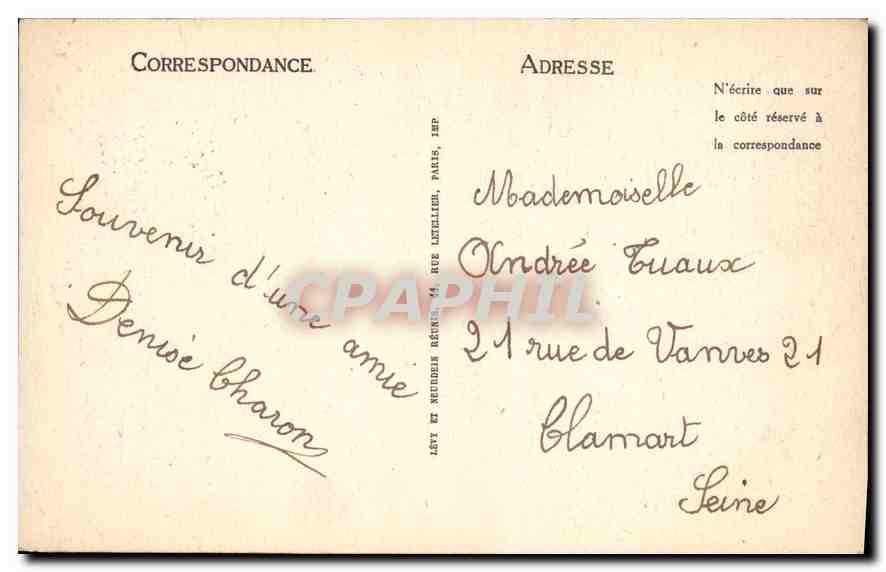 CORRESPONDANCE
ADRESSE
N'écrire que sur
le côté réservé à
la correspondance
Souvenir d'une amie
Denise Charon
LÉVY ET NEURDEIN RÉUNIS, 44, RUE LETELLIER, PARIS, IMP
Mademoiselle
Andrée Tuaux
21 rue de Vanves 21
Clamart
Seine
CPAPHIL